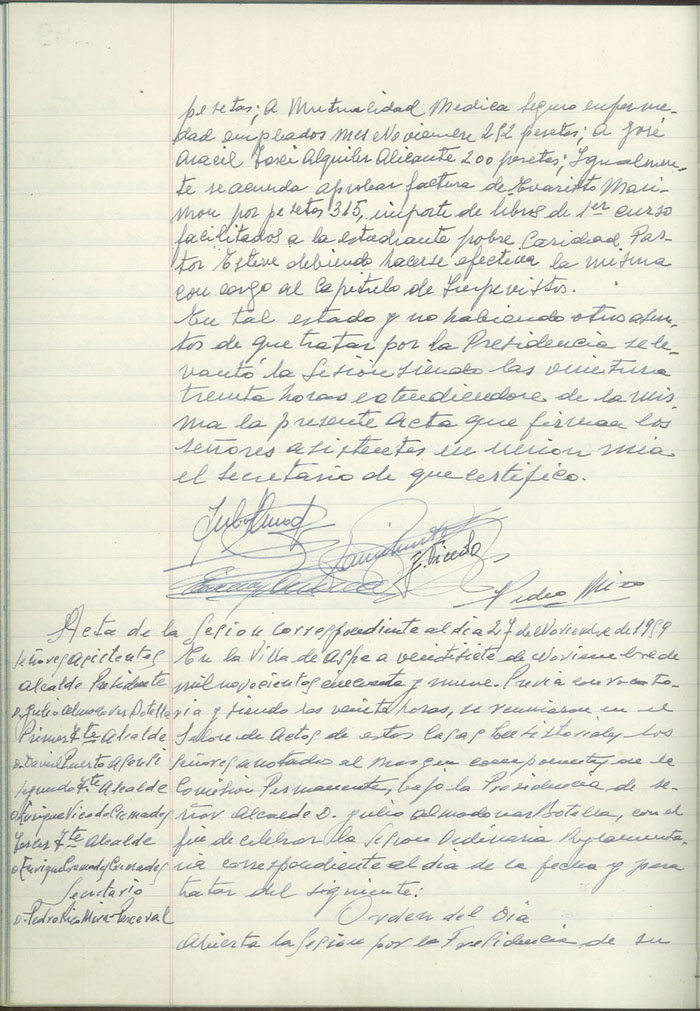 pesetas; A Mutualidad Medica Seguro enferme-
dad empleados mes Noviembre 252 pesetas; a José
Aracil Alquiler Alicante 200 pesetas; Igualmen-
te se acuerda aprobar factura de Evaristo Mari-
mon por pesetas 315, importe de libros de 1er curso
facilitados a la estudiante pobre Caridad Pas-
tor Esteve debiendo hacerse efectiva la misma
con cargo al Capitulo de Imprevistos.
En tal estado y no habiendo otros asun-
tos de que tratar por la Presidencia se le-
vantó la Sesión siendo las veintiuna
treinta horas extendiendose de la mis
ma la presente Acta que firman los
señores asistentes en union mia
el Secretario de que certifico.
J. Vicedo
Pedro Mira
Acta de la Sesion correspondiente al dia 27 de Noviembre de 1959
Señores asistentes
Alcalde Presidente
D. Julio Almodovar Botella
Primer Tte Alcalde
D. David Puerto
Segundo Tte Alcalde
D. Enrique Vicedo Cremades
Tercer Tte Alcalde
D. Enrique Cremades Cremades
Secretario
D. Pedro Mira-Perceval
En la Villa de Aspe a veintisiete de Noviembre de
mil novecientos cincuenta y nueve. Previa convocato-
ria y siendo las veinte horas, se reunieron en el
Salon de Actos de estas Casas Consistoriales los
señores anotados al margen componentes de la
Comision Permanente, bajo la Presidencia de se-
ñor Alcalde D. Julio Almodovar Botella, con el
fin de celebrar la Sesion Ordinaria Reglamenta-
ria correspondiente al dia de la fecha y para
tratar del siguiente:
Orden del Dia
Abierta la Sesion por la Presidencia de su